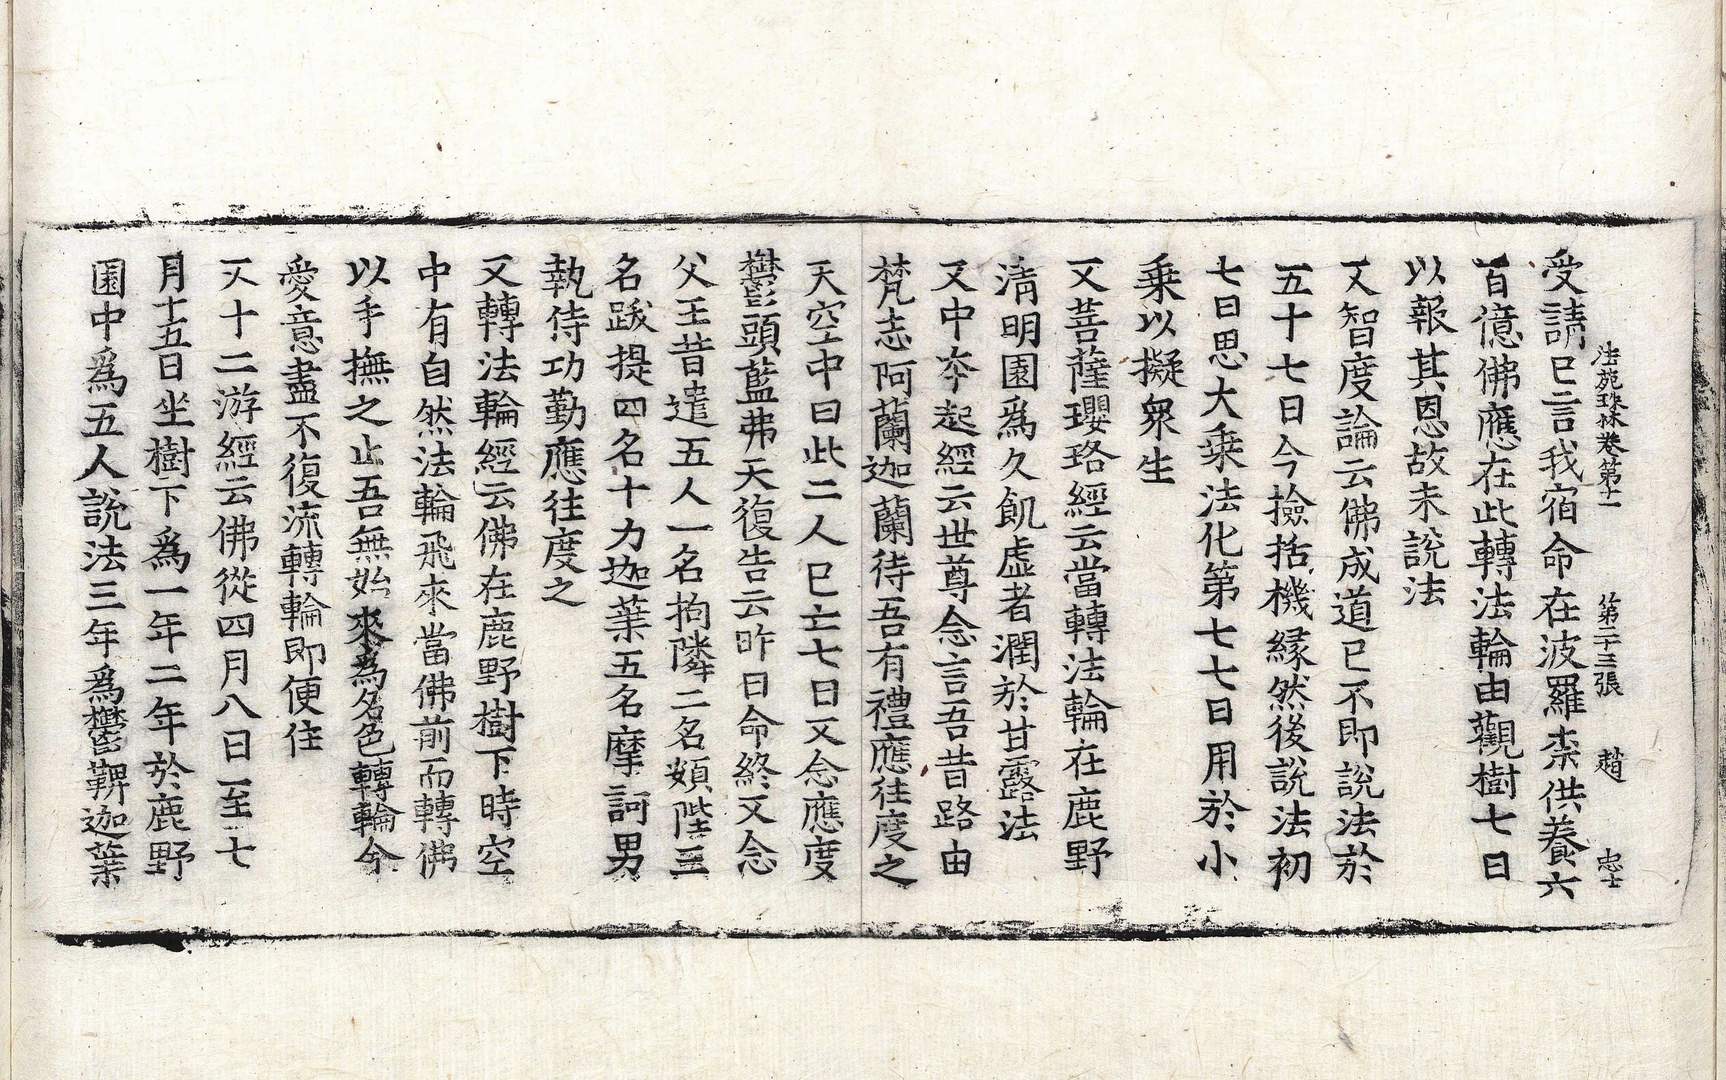 法苑珠林卷第十一　第二十三張　趙　忠士
受請已言我宿命在波羅柰供養六
百億佛應在此轉法輪由觀樹七日
以報其恩故未說法
又智度論云佛成道已不即說法於
五十七日今撿括機緣然後說法初
七日思大乘法化第七七日用於小
乘以擬衆生
又菩薩瓔珞經云當轉法輪在鹿野
清明園爲久飢虛者潤於甘露法
又中夲起經云世尊念言吾昔路由
梵志阿蘭迦蘭待吾有禮應往度之
天空中曰此二人已亡七日又念應度
欝頭藍弗天復告云昨日命終又念
父王昔遣五人一名拘隣二名頞陛三
名跋提四名十力迦葉五名摩訶男
執侍功勤應往度之
又轉法輪經云佛在鹿野樹下時空
中有自然法輪飛來當佛前而轉佛
以手撫之止吾無始來爲名色轉輪今
愛意盡不復流轉輪即便住
又十二游經云佛從四月八日至七
月十五日坐樹下爲一年二年於鹿野
園中爲五人說法三年爲欝鞞迦葉